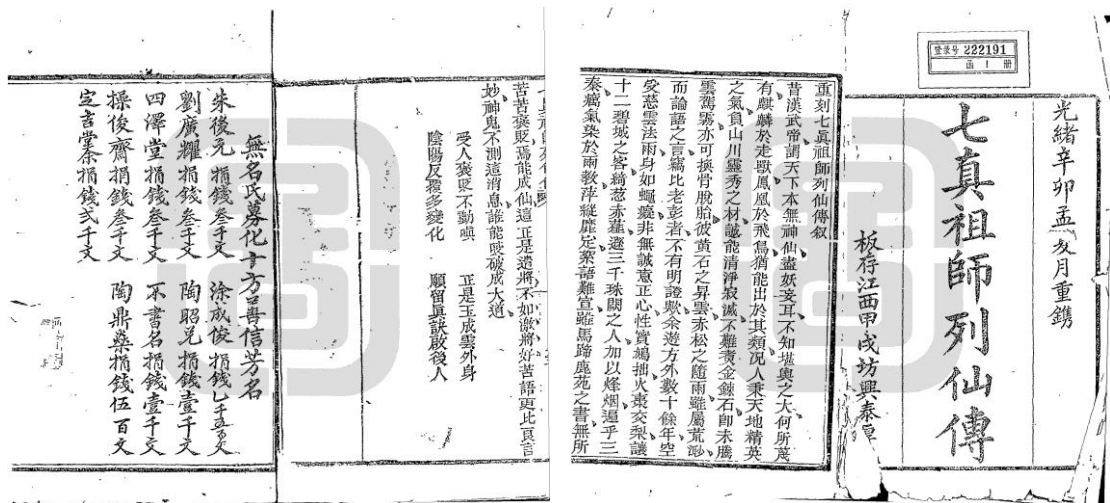 登录号 222191
函 1 册
光緒辛卯孟夏月重鐫
七真祖師列仙傳
板存江西甲戌坊興泰堂
重刻七眞祖師列仙傳叙
昔漢武帝謂天下本無神仙盡妖妄耳不知堪輿之大何所蔑
有麒麟於走獸鳳凰於飛鳥猶能出於其類况人秉天地精英
之氣負山川靈秀之材誠能清淨寂滅不難責金鍊石卽未騰
雲駕霧亦可換骨脫胎彼黃石之昇雲赤松之隨雨雖屬荒渺
而論語之言竊比老彭者不有明證歟余遊方外數十餘年空
受慈雲法雨身如蠅癡非無誠意正心性實褊拙火棗交梨議
十二碧城之客綺蔥赤薤遼三千珠闕之人加以烽烟遍乎三
秦癘氣染於兩敎萍縱靡定案語難宣雖馬蹄鹿苑之書無所
苦苦褒貶焉能成仙這正是遣將不如激將好苦語更比良言
妙神鬼不測這消息誰能咬破成大道
受人褒貶不動嗔 正是玉成雲外身
陰陽反覆多變化 願留眞訣啟後人
無名氏募化十方善信芳名
朱後元捐錢叁千文 涂成俊捐錢乙千五百文
劉廣耀捐錢叁千文 陶昭兄捐錢壹千文
四澤堂捐錢叁千文 不書名捐錢壹千文
操後齋捐錢叁千文 陶鼎燊捐錢伍百文
定言堂余捐錢弍千文